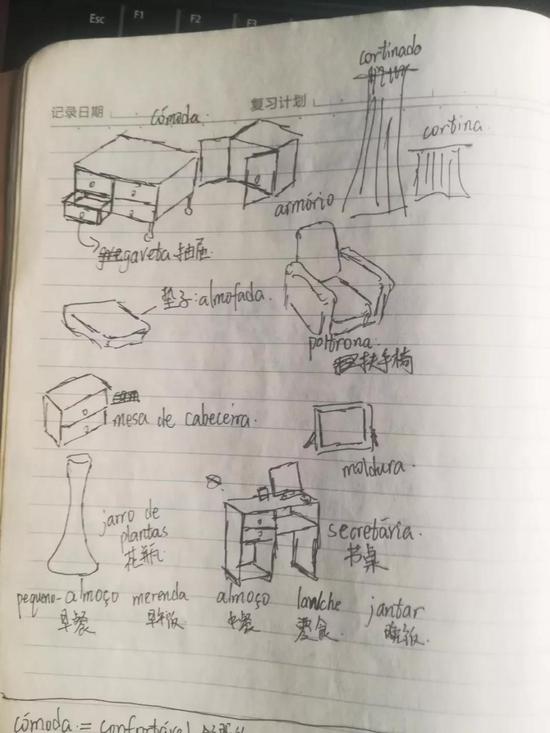 Esc F1 F2 F3
cortinado
记录日期 复习计划
cómoda
cortina
armório
gaveta 抽屉
垫子: almofada.
poltrona
扶手椅
mesa de cabeceira.
moldura
jarro de
plantas
花瓶
secretária.
书桌
pequeno-almoço merenda almoço lanche jantar
早餐 午餐 晚饭
cómoda = confortável